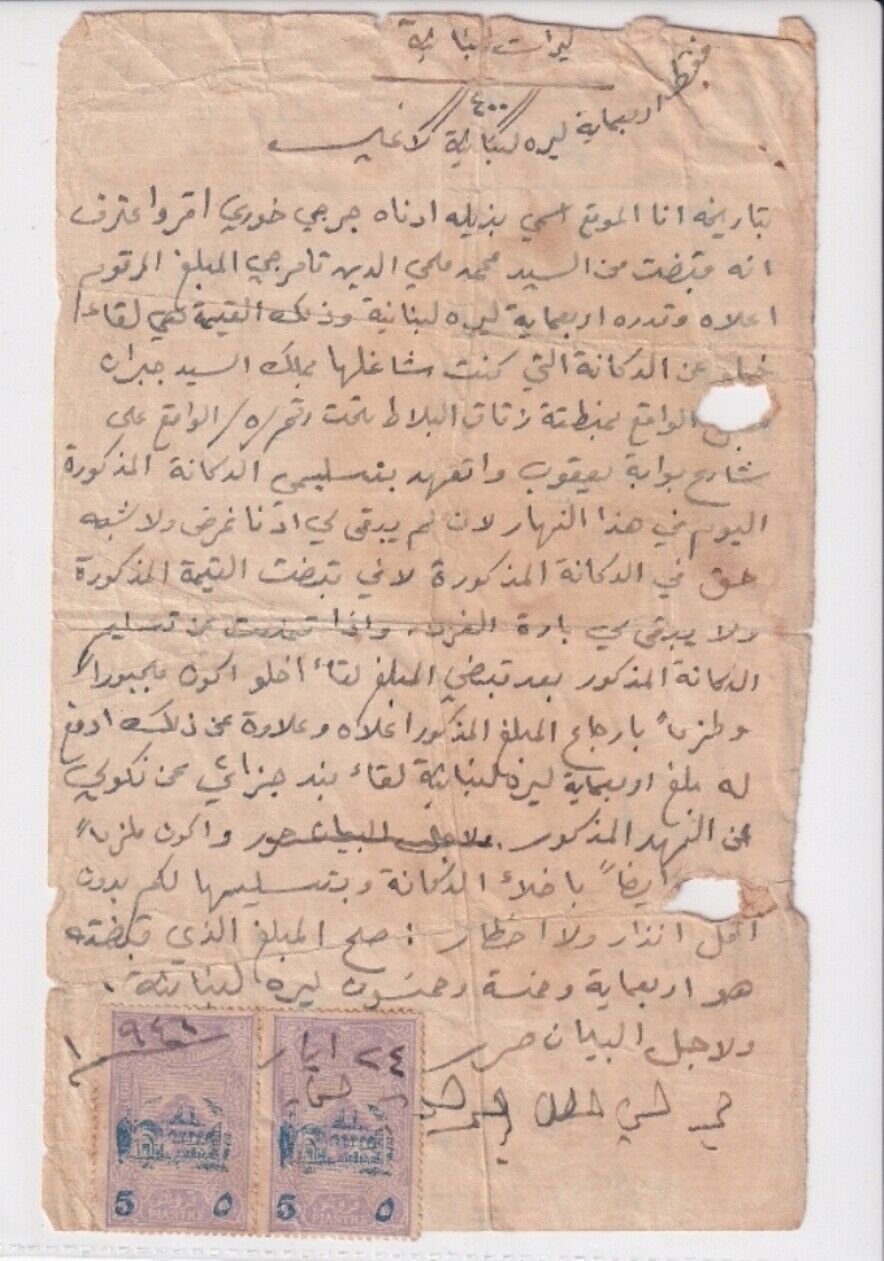 ليرات لبنانية
//٤٠٠//
فقط اربعماية ليره لبنانية لا غير
بتاريخه انا الموقع اسمي بذيله ادناه جرجي خوري اقر واعترف
انه قبضت من السيد محمد محي الدين تامرجي المبلغ المرقوم
اعلاه وقدره اربعماية ليره لبنانية وذلك القيمة هي لقاء
عن الدكانة التي كنت شاغلها ملك السيد جبران
الواقع بمنطقة زقاق البلاط تحت رقم /٥/ الواقع على
شارع بوابة يعقوب واتعهد بتسليم الدكانة المذكورة
اليوم في هذا النهار لان لم يبقى لي ادنا غرض ولا شبه
حق في الدكانة المذكورة لاني قبضت القيمة المذكورة
ولا يبقى لي بارة الفرد. واذا تمنعت عن تسليم
الدكانة المذكور بعد قبضي المبلغ لقاء اخلو اكون مجبوراً
وملزماً بارجاع المبلغ المذكور اعلاه وعلاوة عن ذلك ادفع
له مبلغ اربعماية ليره لبنانية لقاء بند جزائي عن نكولي
عن التعهد المذكور. ولاجل البيان حرر واكون ملزماً
ايضاً باخلاء الدكانة وبتسليمها لكم بدون
اقل انذار ولا اخطار : صح المبلغ الذي قبضته
هو اربعماية وخمسة وخمسون ليره لبنانية.
ولاجل البيان حرر ٢٤ ايار
5 ٥
PIASTRES
5 ٥
PIASTRES